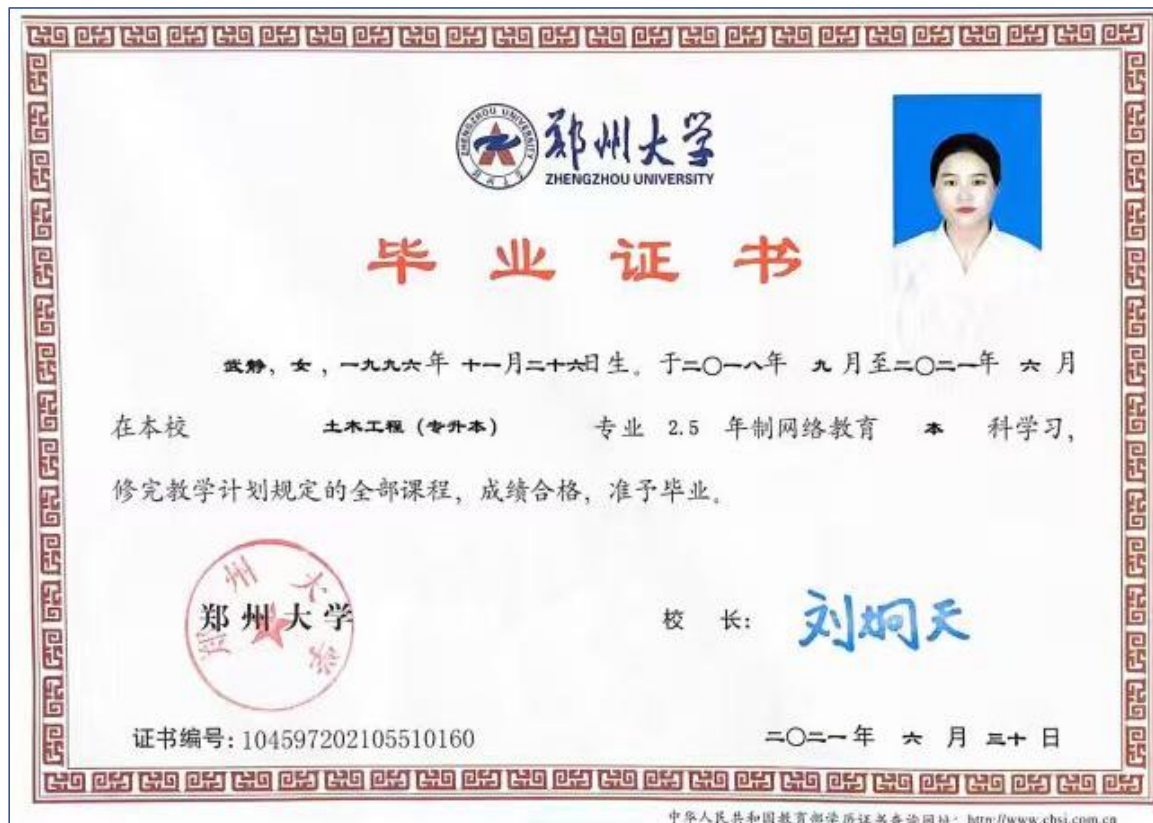 郑州大学
ZHENGZHOU UNIVERSITY
ZHENGZHOU UNIVERSITY
郑州大学
毕业证书
武静, 女, 一九九六年 十一月二十六日生。于二〇一八年 九 月至二〇二一年 六 月
在本校 土木工程（专升本） 专业 2.5 年制网络教育 本 科学习,
修完教学计划规定的全部课程, 成绩合格, 准予毕业。
郑州大学
郑州大学
校 长: 刘炯天
证书编号: 104597202105510160
二〇二一年 六 月 三十 日
中华人民共和国教育部学历证书查询网址: http://www.chsi.com.cn